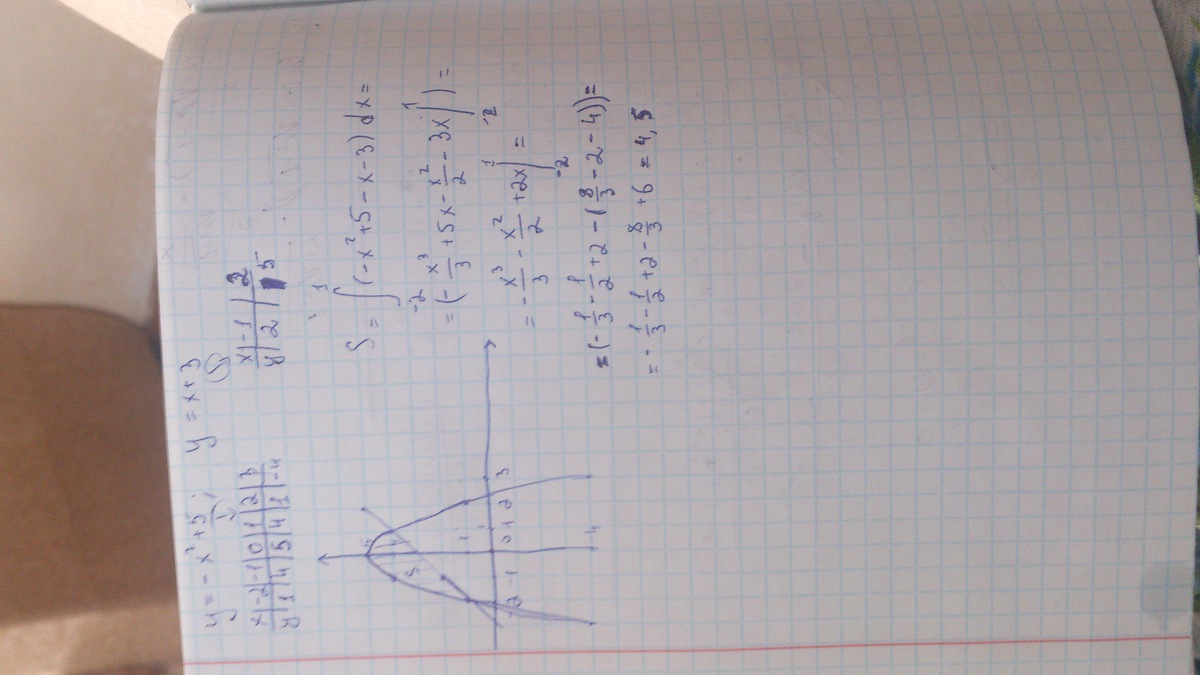 y = -x²+5; y = x+3
x|-2|-1|0|1|2|3
y|1|4|5|4|1|-4
x|-1|2
y|2|5
S = ∫₋₂¹ (-x²+5-x-3)dx =
= (-x³/3+5x-x²/2-3x|₋₂¹) =
= -x³/3-x²/2+2x|₋₂¹ =
= (-1/3-1/2+2-(8/3-2-4)) =
= -1/3-1/2+2-8/3+6 = 4,5
5
S
1
-2 -1 0 1 2 3
-4